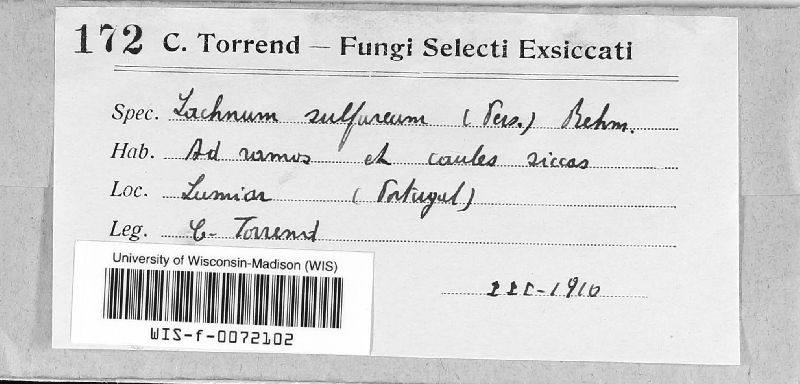 172 C. Torrend — Fungi Selecti Exsiccati
Spec. Lachnum sulfureum (Pers.) Rehm.
Hab. Ad ramos et caules siccas
Loc. Lumiar (Portugal)
Leg. C. Torrend
III-1910
University of Wisconsin-Madison (WIS)
WIS-f-0072102